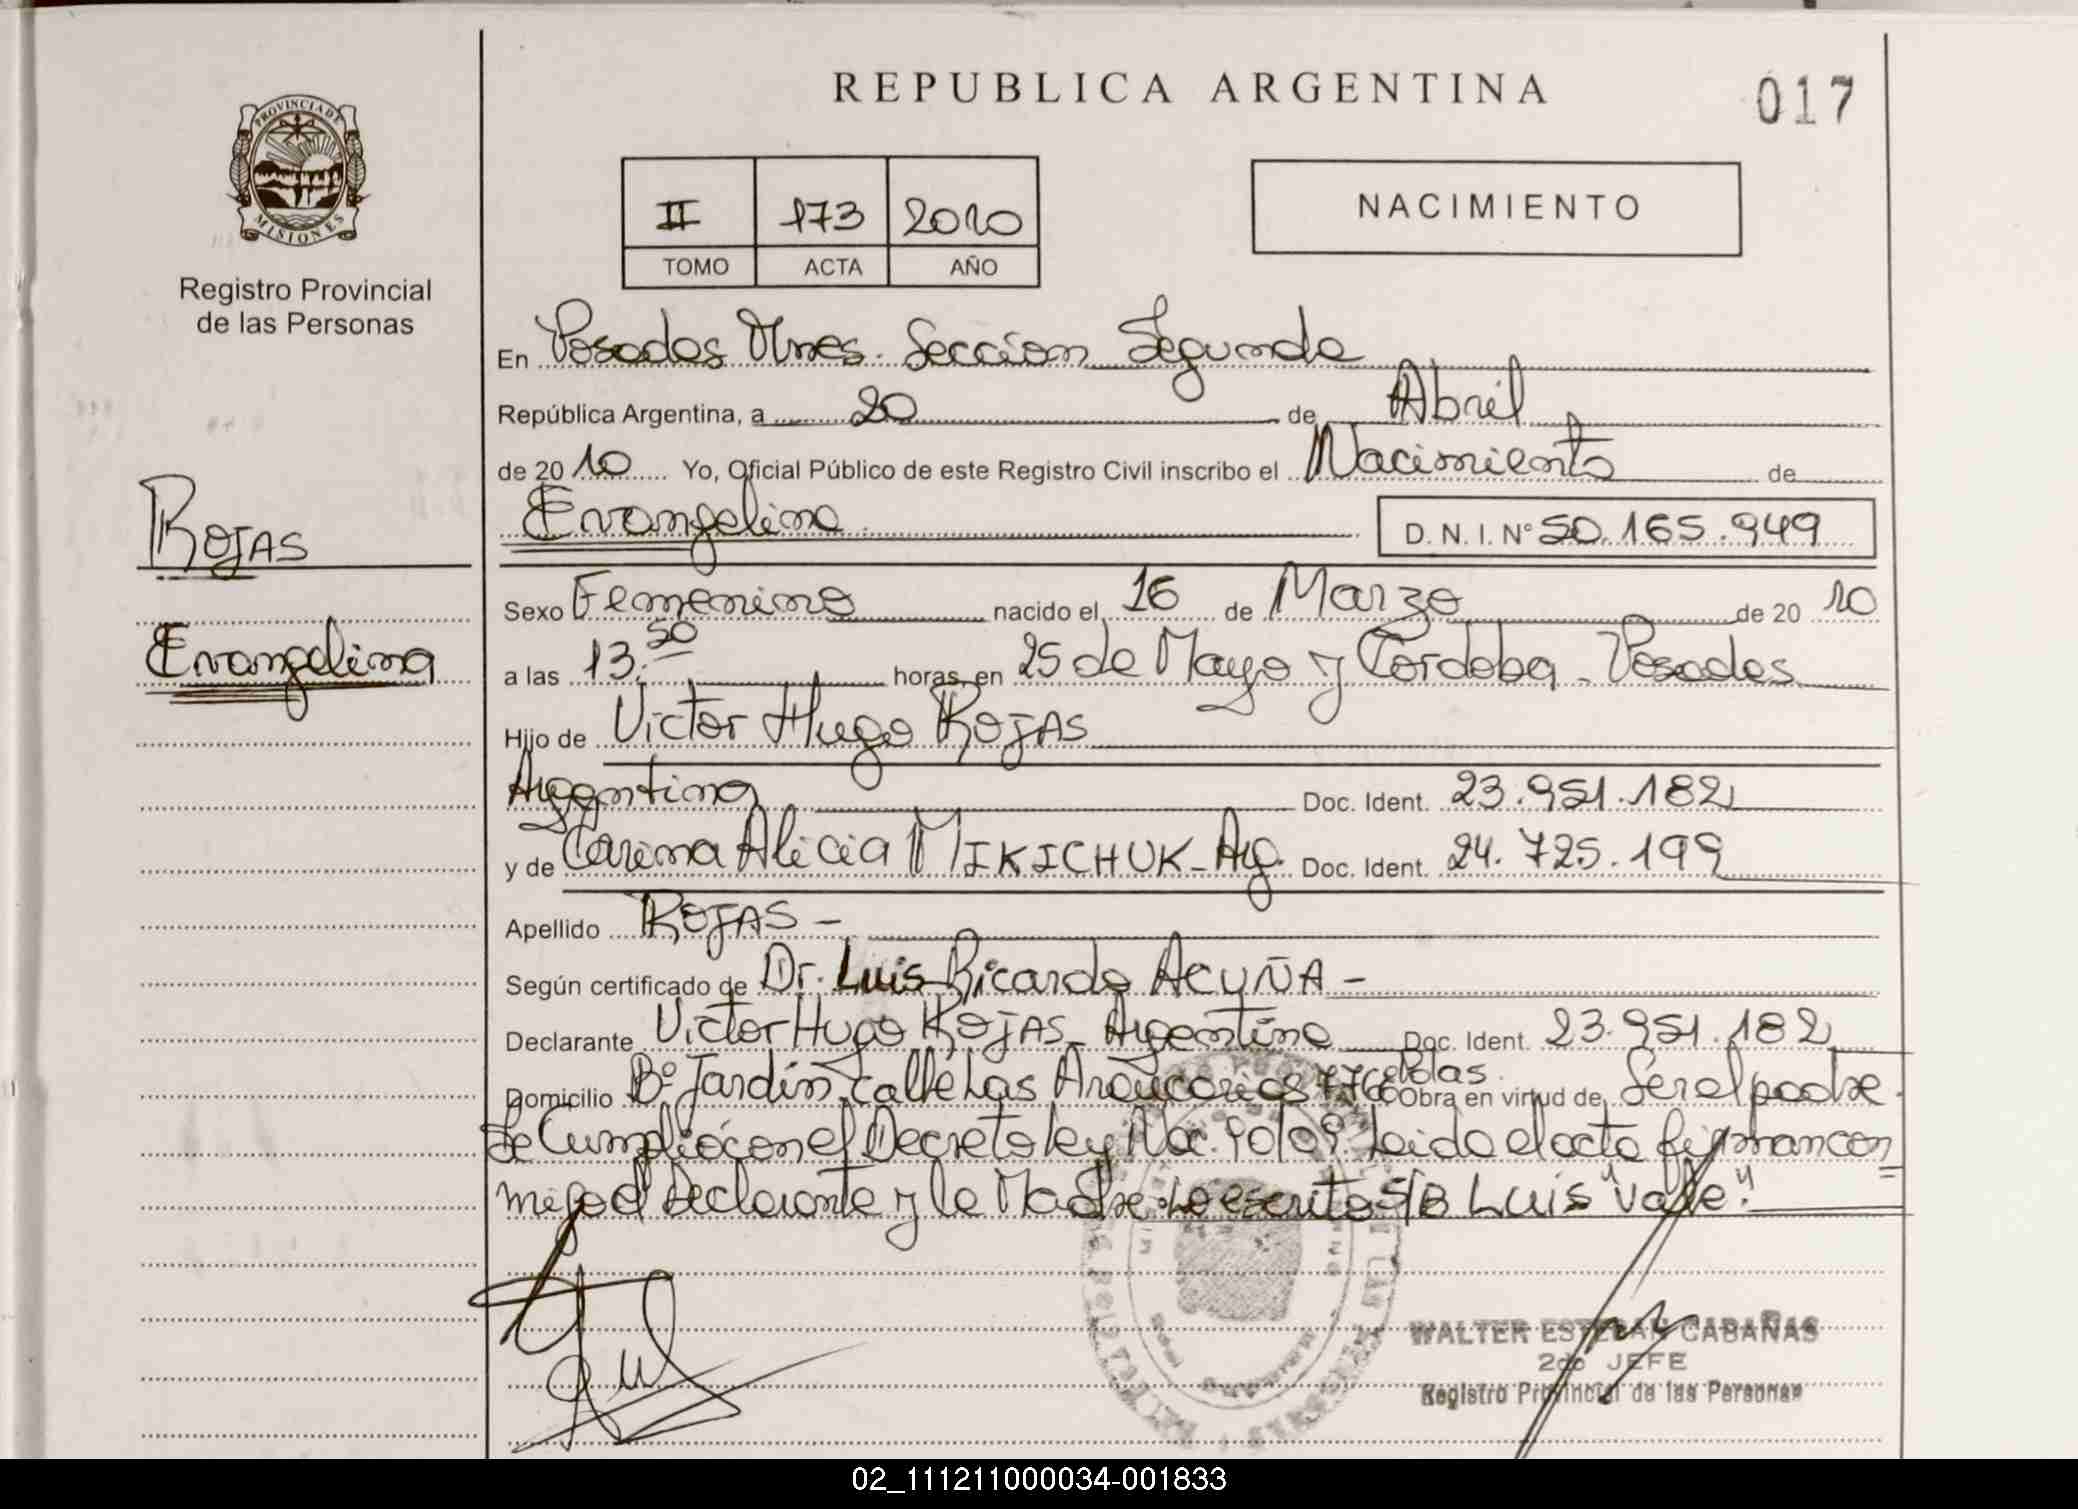 REPUBLICA ARGENTINA
017
PROVINCIA DE
MISIONES
Registro Provincial
de las Personas
II 173 2010
TOMO ACTA AÑO
NACIMIENTO
En Posadas Mnes. Sección Segunda
República Argentina, a 20 de Abril
de 2010 Yo, Oficial Público de este Registro Civil inscribo el Nacimiento de
Evangelina D. N. I. Nº 50.165.949
ROJAS
Evangelina
Sexo Femenino nacido el 16 de Marzo de 20 10
a las 13.50 horas en 25 de Mayo y Córdoba - Posadas
Hijo de Victor Hugo ROJAS
Argentino Doc. Ident. 23.951.182
y de Carina Alicia MIKICHUK - Arg. Doc. Ident. 24.725.199
Apellido ROJAS -
Según certificado de Dr. Luis Ricardo ACUÑA -
Declarante Victor Hugo ROJAS - Argentino Doc. Ident. 23.951.182
Domicilio Bº Jardín, Calle Las Araucarias 776 Pdas. Obra en virtud de Ser el padre.
Se Cumplió con el Decreto Ley Nac. Leido el acta firman con
migo el Declarante y la Madre. Lo escrito S/B Luis "Vale".
WALTER ESTEBAN CABAÑAS
2do JEFE
Registro Provincial de las Personas
02_111211000034-001833